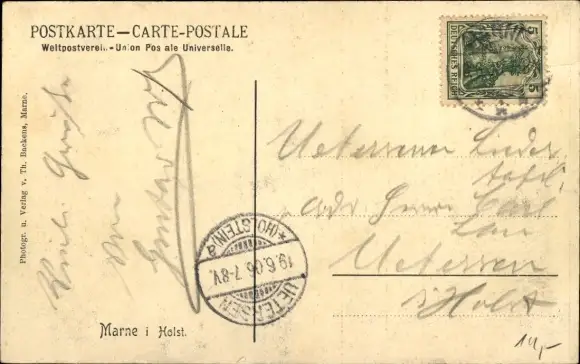 POSTKARTE—CARTE-POSTALE
Weltpostverein.-Union Pos ale Universelle.
Photogr. u. Verlag v. Th. Backens, Marne.
Viele Grüße
von
Gustav
DEUTSCHES REICH
5 5
UETERSEN
19.6.06 7-8V.
*(HOLSTEIN)a
Uetersener Lieder
tafel
Adr. Herrn Carl
Uetersen
i/Holst
Marne i Holst.
10,-